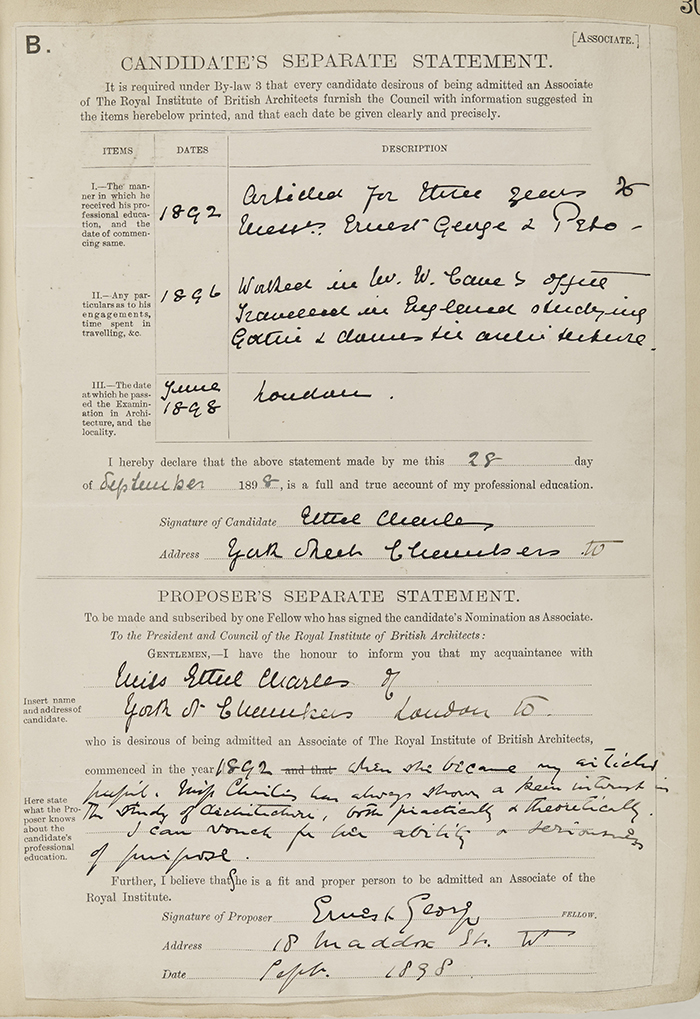 30
B.
[ASSOCIATE.]
CANDIDATE'S SEPARATE STATEMENT.
It is required under By-law 3 that every candidate desirous of being admitted an Associate
of The Royal Institute of British Architects furnish the Council with information suggested in
the items herebelow printed, and that each date be given clearly and precisely.
ITEMS DATES DESCRIPTION
I.—The man-
ner in which he
received his pro-
fessional educa-
tion, and the
date of commen-
cing same.
1892
Articled for three years to
Messrs. Ernest George & Peto -
II.—Any par-
ticulars as to his
engagements,
time spent in
travelling, &c.
1896
Worked in Mr. W. Cave's office
Travelled in England studying
Gothic & domestic architecture.
III.—The date
at which he pass-
ed the Examin-
ation in Archi-
tecture, and the
locality.
June
1898
London.
I hereby declare that the above statement made by me this 28 day
of September 1898, is a full and true account of my professional education.
Signature of Candidate Ethel Charles
Address York Street Chambers W
PROPOSER'S SEPARATE STATEMENT.
To be made and subscribed by one Fellow who has signed the candidate's Nomination as Associate.
To the President and Council of the Royal Institute of British Architects:
GENTLEMEN,—I have the honour to inform you that my acquaintance with
Miss Ethel Charles of
Insert name
and address of
candidate.
York St Chambers London W.
who is desirous of being admitted an Associate of The Royal Institute of British Architects,
commenced in the year 1892 and that when she became my articled
Here state
what the Pro-
poser knows
about the
candidate's
professional
education.
pupil. Miss Charles has always shown a keen interest in
the study of Architecture, both practically & theoretically.
I can vouch for her ability & seriousness
of purpose.
Further, I believe that She is a fit and proper person to be admitted an Associate of the
Royal Institute.
Signature of Proposer Ernest George FELLOW.
Address 18 Maddox St. W
Date Sept. 1898